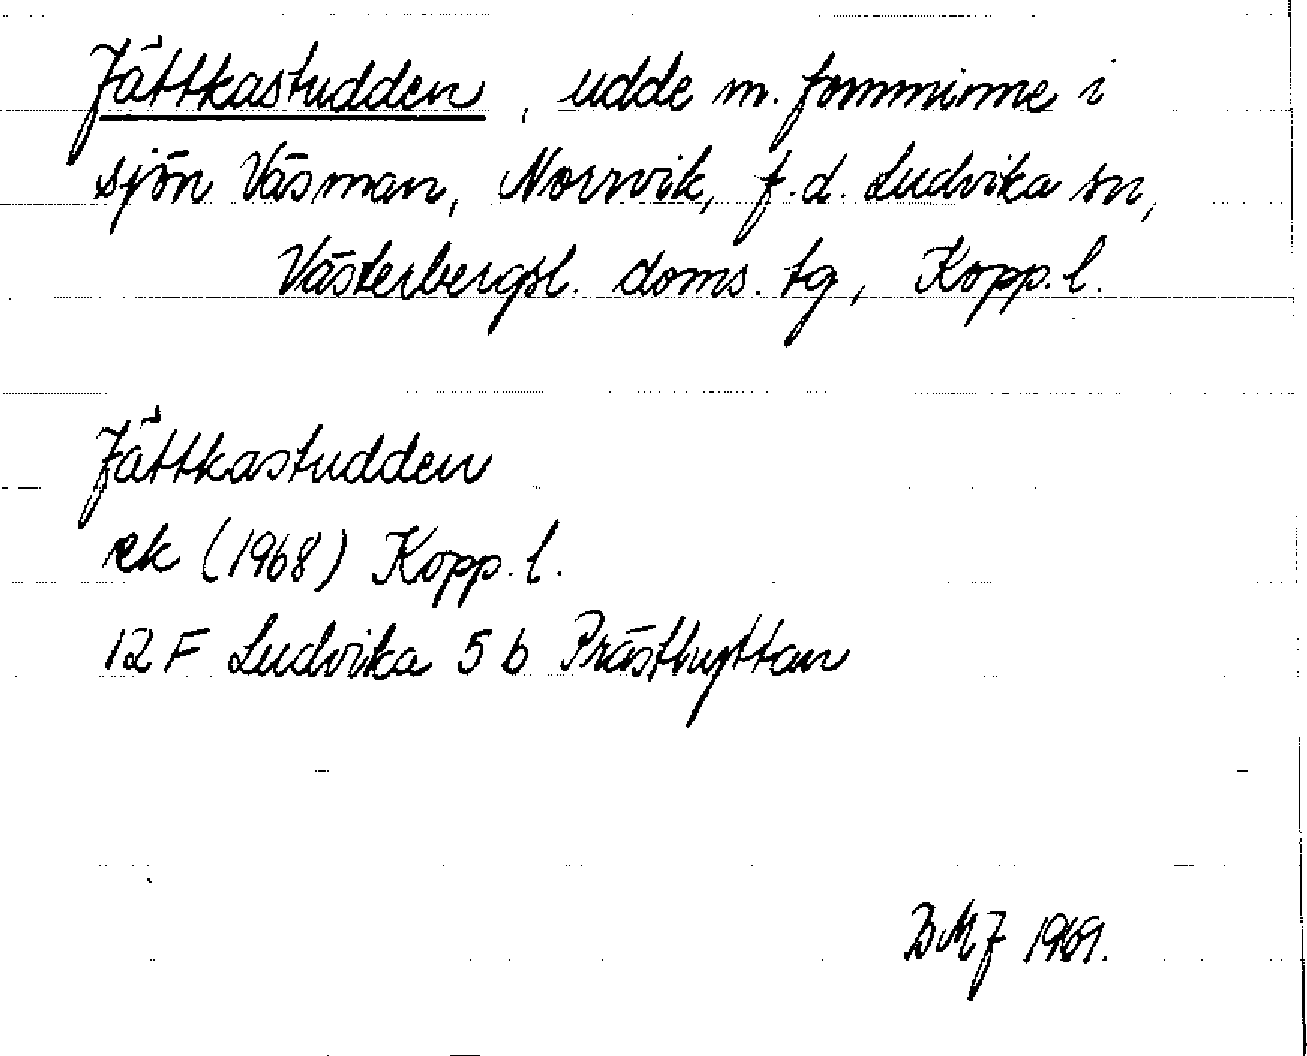 Jättkastudden, udde m. fornminne i
sjön Väsman, Norrvik, f.d. Ludvika sn,
Västerbergsl. doms. tg, Kopp. l.
Jättkastudden
ek (1968) Kopp. l.
12 F Ludvika 5 b Prästhyttan
BMJ 1969.